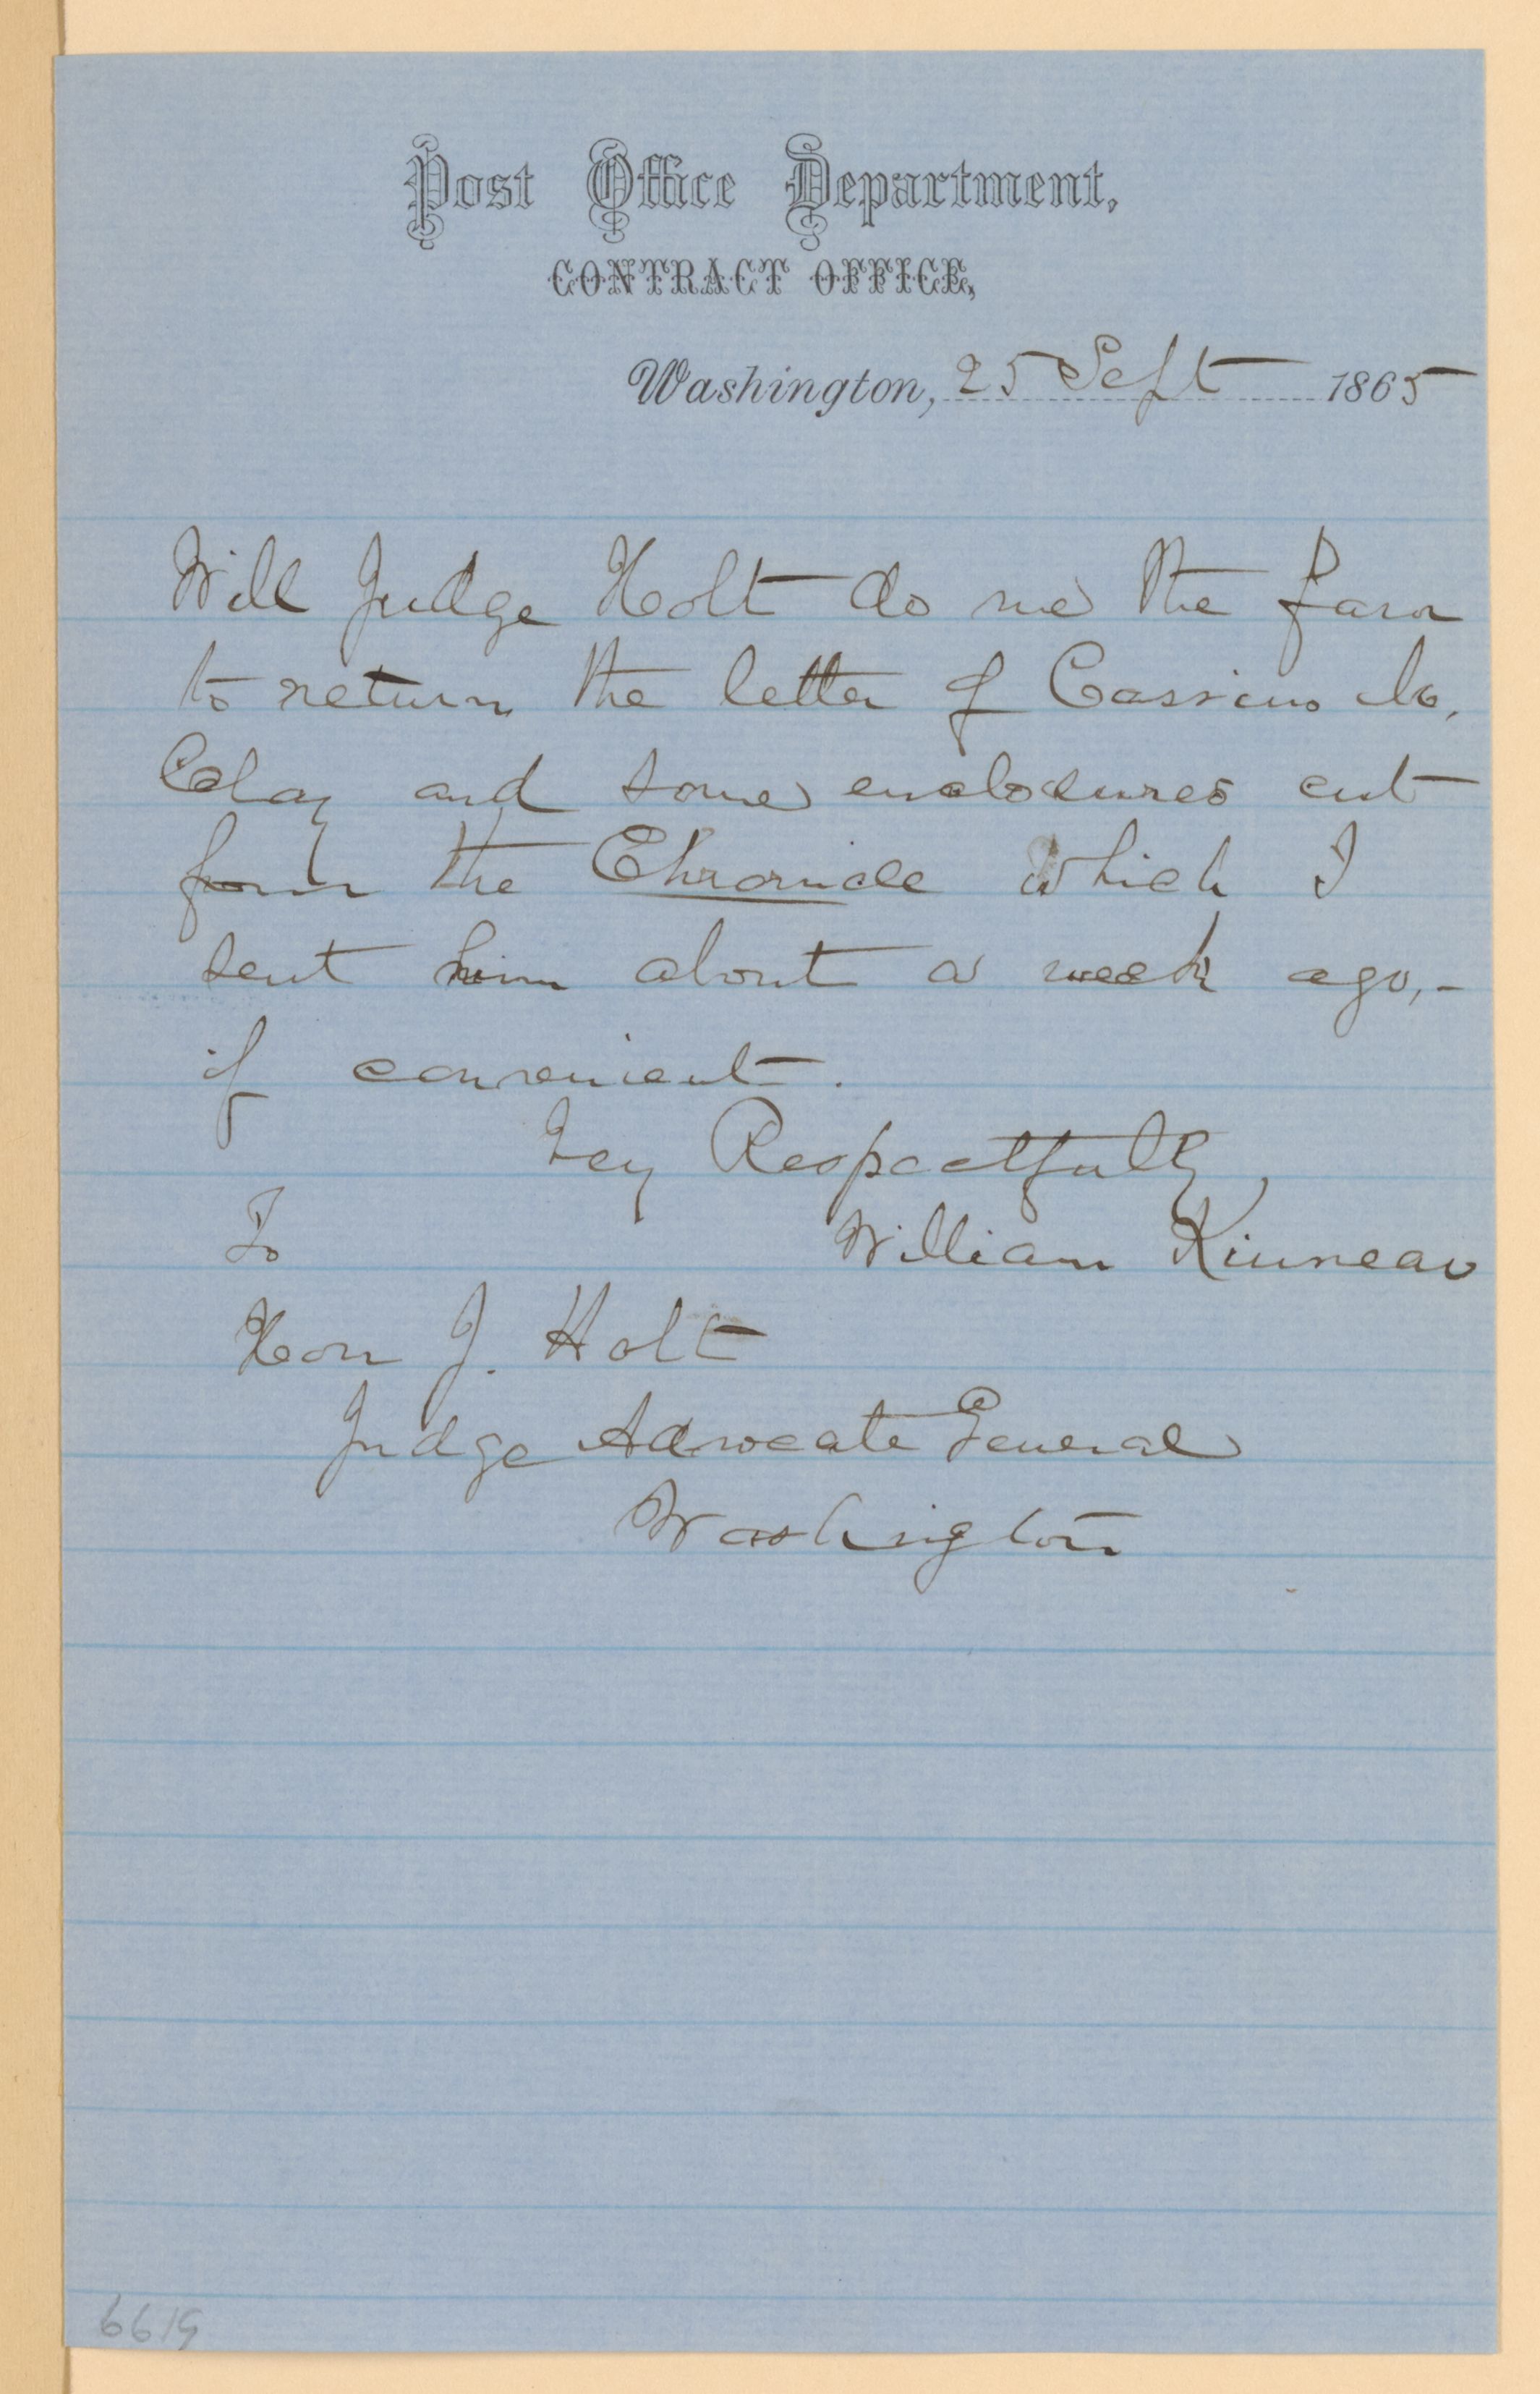 Post Office Department,
CONTRACT OFFICE,
Washington, 25 Sept 1865
Will Judge Holt do me the favor
to return the letter of Cassius M.
Clay and some enclosures cut
from the Chronicle which I
sent him about a week ago,-
if convenient.
Very Respectfully
To William Kinnear
Hon J. Holt
Judge Advocate General
Washington
6619